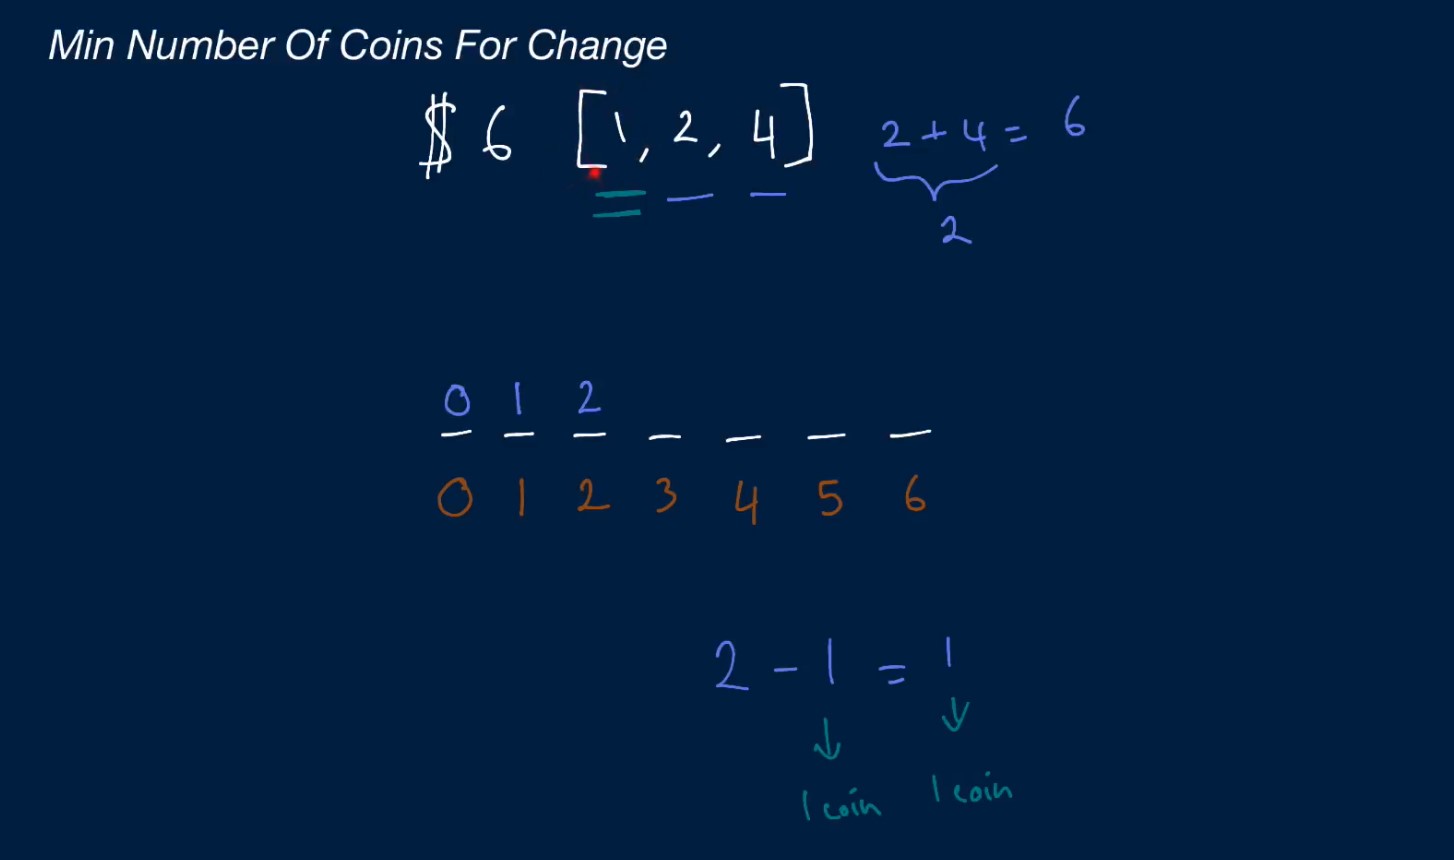 Min Number Of Coins For Change
$ 6 [1, 2, 4] 2 + 4 = 6
2
0 1 2
0 1 2 3 4 5 6
2 - 1 = 1
1 coin 1 coin